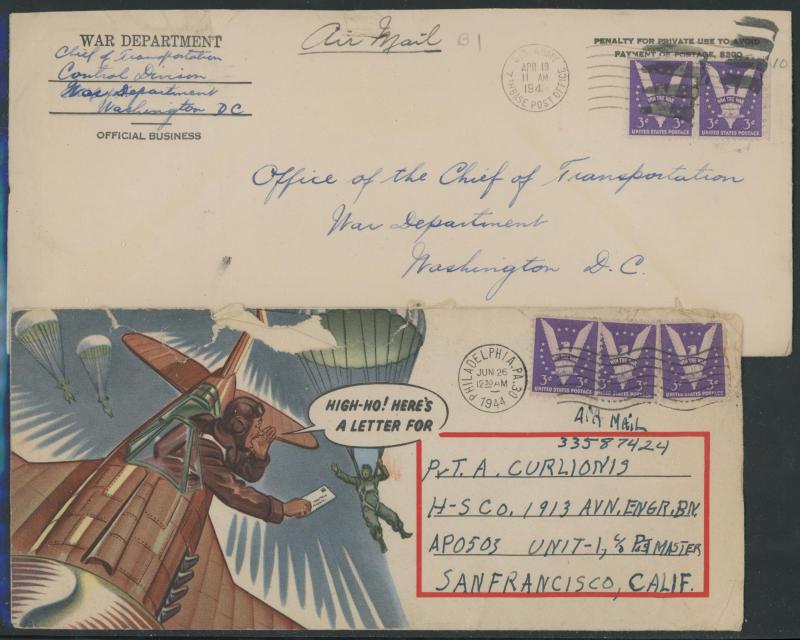 WAR DEPARTMENT
Chief of Transportation
Control Division
War Department
Washington D C
OFFICIAL BUSINESS
Air Mail
B1
U.S. ARMY
APR 19
11 AM
194
7TH BASE POST OFFICE
PENALTY FOR PRIVATE USE TO AVOID
PAYMENT OF POSTAGE, $300
10
WIN THE WAR
3¢ 3¢
UNITED STATES POSTAGE
WIN THE WAR
3¢ 3¢
UNITED STATES POSTAGE
Office of the Chief of Transportation
War Department
Washington D.C.
PHILADELPHIA, PA. 30
JUN 26
12:30 AM
1944
3¢ 3¢
UNITED STATES POSTAGE
WIN THE WAR
3¢ 3¢
UNITED STATES POSTAGE
3¢ 3¢
UNITED STATES POSTAGE
HIGH-HO! HERE'S
A LETTER FOR
AIR MAIL
33587424
PVT. A. CURLIONIS
H-S CO. 1913 AVN. ENGR. BN.
APO503 UNIT-1, c/o MASTER
SANFRANCISCO, CALIF.